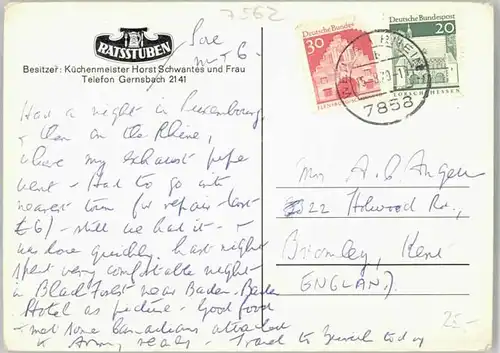 7562
RATSSTUBEN
Besitzer: Küchenmeister Horst Schwantes und Frau
Telefon Gernsbach 2141
Deutsche Bundespost
30
FLENSBURG
Deutsche Bundespost
20
LORSCH/HESSEN
7858
Had a night in Luxembourg
& then on the Rhine,
where my exhaust pipe
went - Had to go into
nearest town for repair - cost
£6! - still we had it - &
was done quickly. Last night
spent very comfortable night
in Black Forest near Baden-Baden
Hotel as picture - Good food
- met some Canadians attached
to Army, ready - Travel to today
A. G. Angus
22 Holwood Rd.,
Bromley, Kent
ENGLAND.
25,-